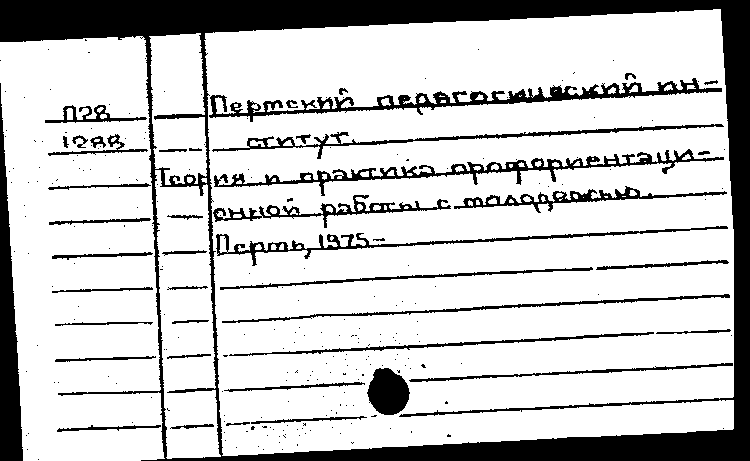 П28
1288
Пермский педагогический ин-
ститут.
Теория и практика профориентаци-
онной работы с молодежью.
Пермь, 1975-